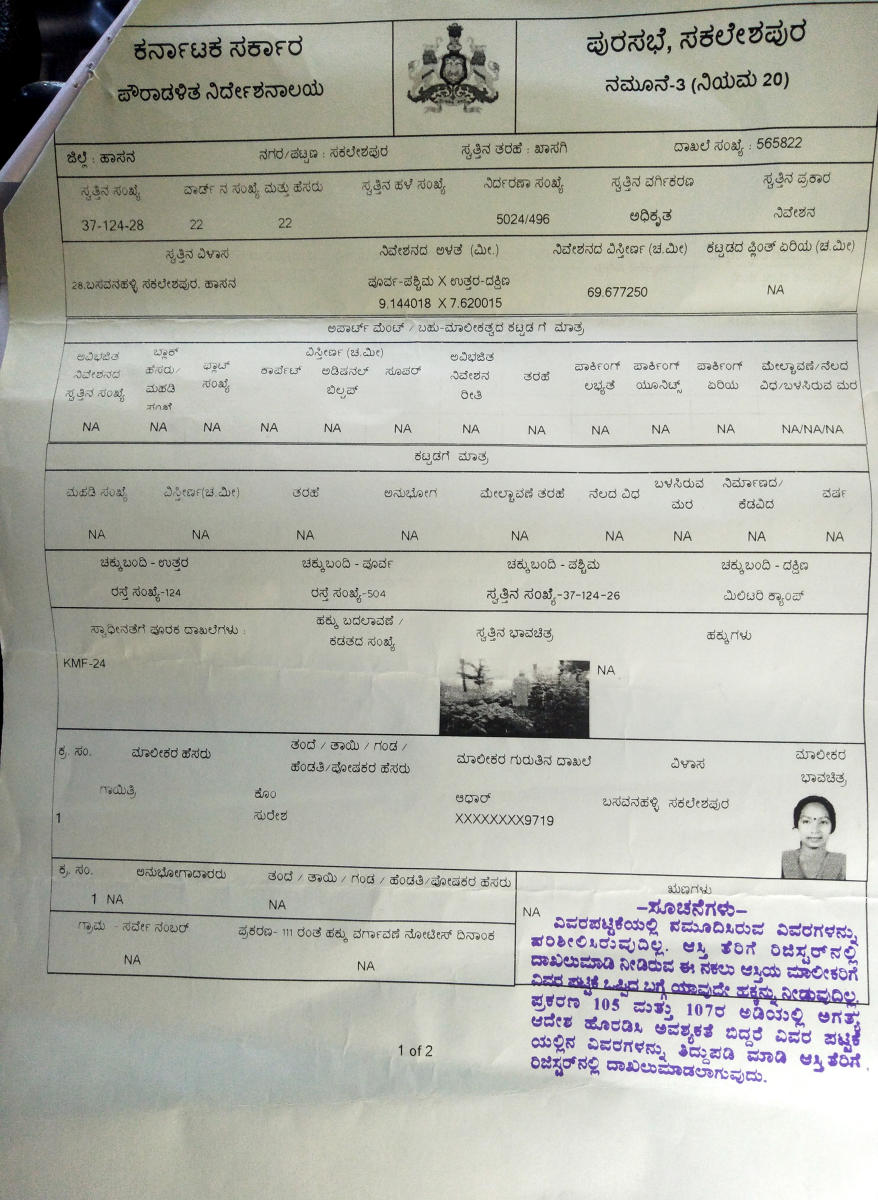 ಕರ್ನಾಟಕ ಸರ್ಕಾರ
ಪೌರಾಡಳಿತ ನಿರ್ದೇಶನಾಲಯ
ಪುರಸಭೆ, ಸಕಲೇಶಪುರ
ನಮೂನೆ-3 (ನಿಯಮ 20)
ಜಿಲ್ಲೆ : ಹಾಸನ ನಗರ/ಪಟ್ಟಣ : ಸಕಲೇಶಪುರ ಸ್ವತ್ತಿನ ತರಹೆ : ಖಾಸಗಿ ದಾಖಲೆ ಸಂಖ್ಯೆ : 565822
ಸ್ವತ್ತಿನ ಸಂಖ್ಯೆ ವಾರ್ಡ್ ನ ಸಂಖ್ಯೆ ಮತ್ತು ಹೆಸರು ಸ್ವತ್ತಿನ ಹಳೆ ಸಂಖ್ಯೆ ನಿರ್ದರಣಾ ಸಂಖ್ಯೆ ಸ್ವತ್ತಿನ ವರ್ಗಿಕರಣ ಸ್ವತ್ತಿನ ಪ್ರಕಾರ
37-124-28 22 22 5024/496 ಅಧಿಕೃತ ನಿವೇಶನ
ಸ್ವತ್ತಿನ ವಿಳಾಸ ನಿವೇಶನದ ಅಳತೆ (ಮೀ.) ನಿವೇಶನದ ವಿಸ್ತೀರ್ಣ (ಚ.ಮೀ) ಕಟ್ಟಡದ ಪ್ಲಿಂತ್ ಏರಿಯ (ಚ.ಮೀ)
28.ಬಸವನಹಳ್ಳಿ ಸಕಲೇಶಪುರ. ಹಾಸನ ಪೂರ್ವ-ಪಶ್ಚಿಮ X ಉತ್ತರ-ದಕ್ಷಿಣ 69.677250 NA
9.144018 X 7.620015
ಅಪಾರ್ಟ್ ಮೆಂಟ್ / ಬಹು-ಮಾಲೀಕತ್ವದ ಕಟ್ಟಡ ಗೆ ಮಾತ್ರ
ಅವಿಭಜಿತ ಬ್ಲಾಕ್ ವಿಸ್ತೀರ್ಣ (ಚ.ಮೀ) ಅವಿಭಜಿತ ಪಾರ್ಕಿಂಗ್ ಪಾರ್ಕಿಂಗ್ ಪಾರ್ಕಿಂಗ್ ಮೇಲ್ಚಾವಣಿ/ನೆಲದ
ನಿವೇಶನದ ಹೆಸರು/ ಫ್ಲಾಟ್ ಕಾರ್ಪೆಟ್ ಅಡಿಷನಲ್ ಸೂಪರ್ ನಿವೇಶನ ತರಹೆ ಲಭ್ಯತೆ ಯೂನಿಟ್ಸ್ ಏರಿಯ ವಿಧ/ಬಳಸಿರುವ ಮರ
ಸ್ವತ್ತಿನ ಸಂಖ್ಯೆ ಮಹಡಿ ಸಂಖ್ಯೆ ಬಿಲ್ಟಪ್ ರೀತಿ
ಸಂಖ್ಯೆ
NA NA NA NA NA NA NA NA NA NA NA NA/NA/NA
ಕಟ್ಟಡಗೆ ಮಾತ್ರ
ಮಹಡಿ ಸಂಖ್ಯೆ ವಿಸ್ತೀರ್ಣ(ಚ.ಮೀ) ತರಹೆ ಅನುಭೋಗ ಮೇಲ್ಚಾವಣಿ ತರಹೆ ನೆಲದ ವಿಧ ಬಳಸಿರುವ ಮರ ನಿರ್ಮಾಣದ/ ಕೆಡವಿದ ವರ್ಷ
NA NA NA NA NA NA NA NA NA
ಚಕ್ಕುಬಂದಿ - ಉತ್ತರ ಚಕ್ಕುಬಂದಿ - ಪೂರ್ವ ಚಕ್ಕುಬಂದಿ - ಪಶ್ಚಿಮ ಚಕ್ಕುಬಂದಿ - ದಕ್ಷಿಣ
ರಸ್ತೆ ಸಂಖ್ಯೆ-124 ರಸ್ತೆ ಸಂಖ್ಯೆ-504 ಸ್ವತ್ತಿನ ಸಂಖ್ಯೆ-37-124-26 ಮಿಲಿಟರಿ ಕ್ಯಾಂಪ್
ಸ್ವಾಧೀನತೆಗೆ ಪೂರಕ ದಾಖಲೆಗಳು : ಹಕ್ಕು ಬದಲಾವಣೆ / ಸ್ವತ್ತಿನ ಭಾವಚಿತ್ರ ಹಕ್ಕುಗಳು
ಕಡತದ ಸಂಖ್ಯೆ
KMF-24 NA
ಕ್ರ. ಸಂ. ಮಾಲೀಕರ ಹೆಸರು ತಂದೆ / ತಾಯಿ / ಗಂಡ / ಮಾಲೀಕರ ಗುರುತಿನ ದಾಖಲೆ ವಿಳಾಸ ಮಾಲೀಕರ
ಹೆಂಡತಿ/ಪೋಷಕರ ಹೆಸರು ಭಾವಚಿತ್ರ
ಗಾಯಿತ್ರಿ ಕೊಂ ಆಧಾರ್ ಬಸವನಹಳ್ಳಿ ಸಕಲೇಶಪುರ
1 ಸುರೇಶ XXXXXXXX9719
ಕ್ರ. ಸಂ. ಅನುಭೋಗಾದಾರರು ತಂದೆ / ತಾಯಿ / ಗಂಡ / ಹೆಂಡತಿ/ಪೋಷಕರ ಹೆಸರು ಋಣಗಳು
1 NA NA NA
ಗ್ರಾಮ - ಸರ್ವೇ ನಂಬರ್ ಪ್ರಕರಣ- 111 ರಂತೆ ಹಕ್ಕು ವರ್ಗಾವಣೆ ನೋಟೀಸ್ ದಿನಾಂಕ
NA NA
-ಸೂಚನೆಗಳು-
ವಿವರಪಟ್ಟಿಕೆಯಲ್ಲಿ ನಮೂದಿಸಿರುವ ವಿವರಗಳನ್ನು
ಪರಿಶೀಲಿಸಿರುವುದಿಲ್ಲ. ಆಸ್ತಿ ತೆರಿಗೆ ರಿಜಿಸ್ಟರ್‌ನಲ್ಲಿ
ದಾಖಲುಮಾಡಿ ನೀಡಿರುವ ಈ ನಕಲು ಆಸ್ತಿಯ ಮಾಲೀಕರಿಗೆ
ವಿವರ ಪಟ್ಟಿಕೆ ಒಪ್ಪಿದ ಬಗ್ಗೆ ಯಾವುದೇ ಹಕ್ಕನ್ನು ನೀಡುವುದಿಲ್ಲ.
ಪ್ರಕರಣ 105 ಮತ್ತು 107ರ ಅಡಿಯಲ್ಲಿ ಅಗತ್ಯ
ಆದೇಶ ಹೊರಡಿಸಿ ಅವಶ್ಯಕತೆ ಬಿದ್ದರೆ ವಿವರ ಪಟ್ಟಿಕೆ
ಯಲ್ಲಿನ ವಿವರಗಳನ್ನು ತಿದ್ದುಪಡಿ ಮಾಡಿ ಆಸ್ತಿ ತೆರಿಗೆ
ರಿಜಿಸ್ಟರ್‌ನಲ್ಲಿ ದಾಖಲುಮಾಡಲಾಗುವುದು.
1 of 2